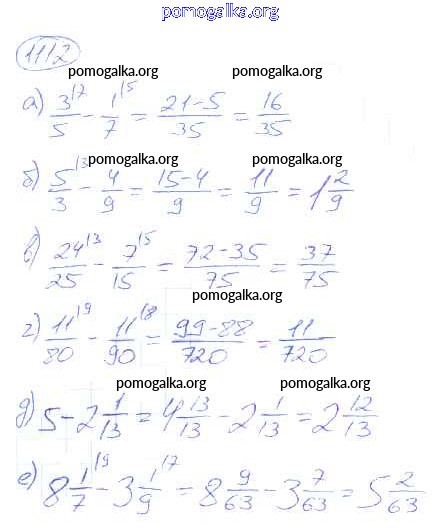 pomogalka.org
1112
pomogalka.org pomogalka.org
а) 3/5 ^7 - 1/7 ^5 = (21-5)/35 = 16/35
pomogalka.org pomogalka.org
б) 5/3 ^3 - 4/9 = (15-4)/9 = 11/9 = 1 2/9
pomogalka.org
в) 24/25 ^3 - 7/15 ^5 = (72-35)/75 = 37/75
pomogalka.org
г) 11/80 ^9 - 11/90 ^8 = (99-88)/720 = 11/720
pomogalka.org pomogalka.org
д) 5 - 2 1/13 = 4 13/13 - 2 1/13 = 2 12/13
pomogalka.org
е) 8 1/7 ^9 - 3 1/9 ^7 = 8 9/63 - 3 7/63 = 5 2/63